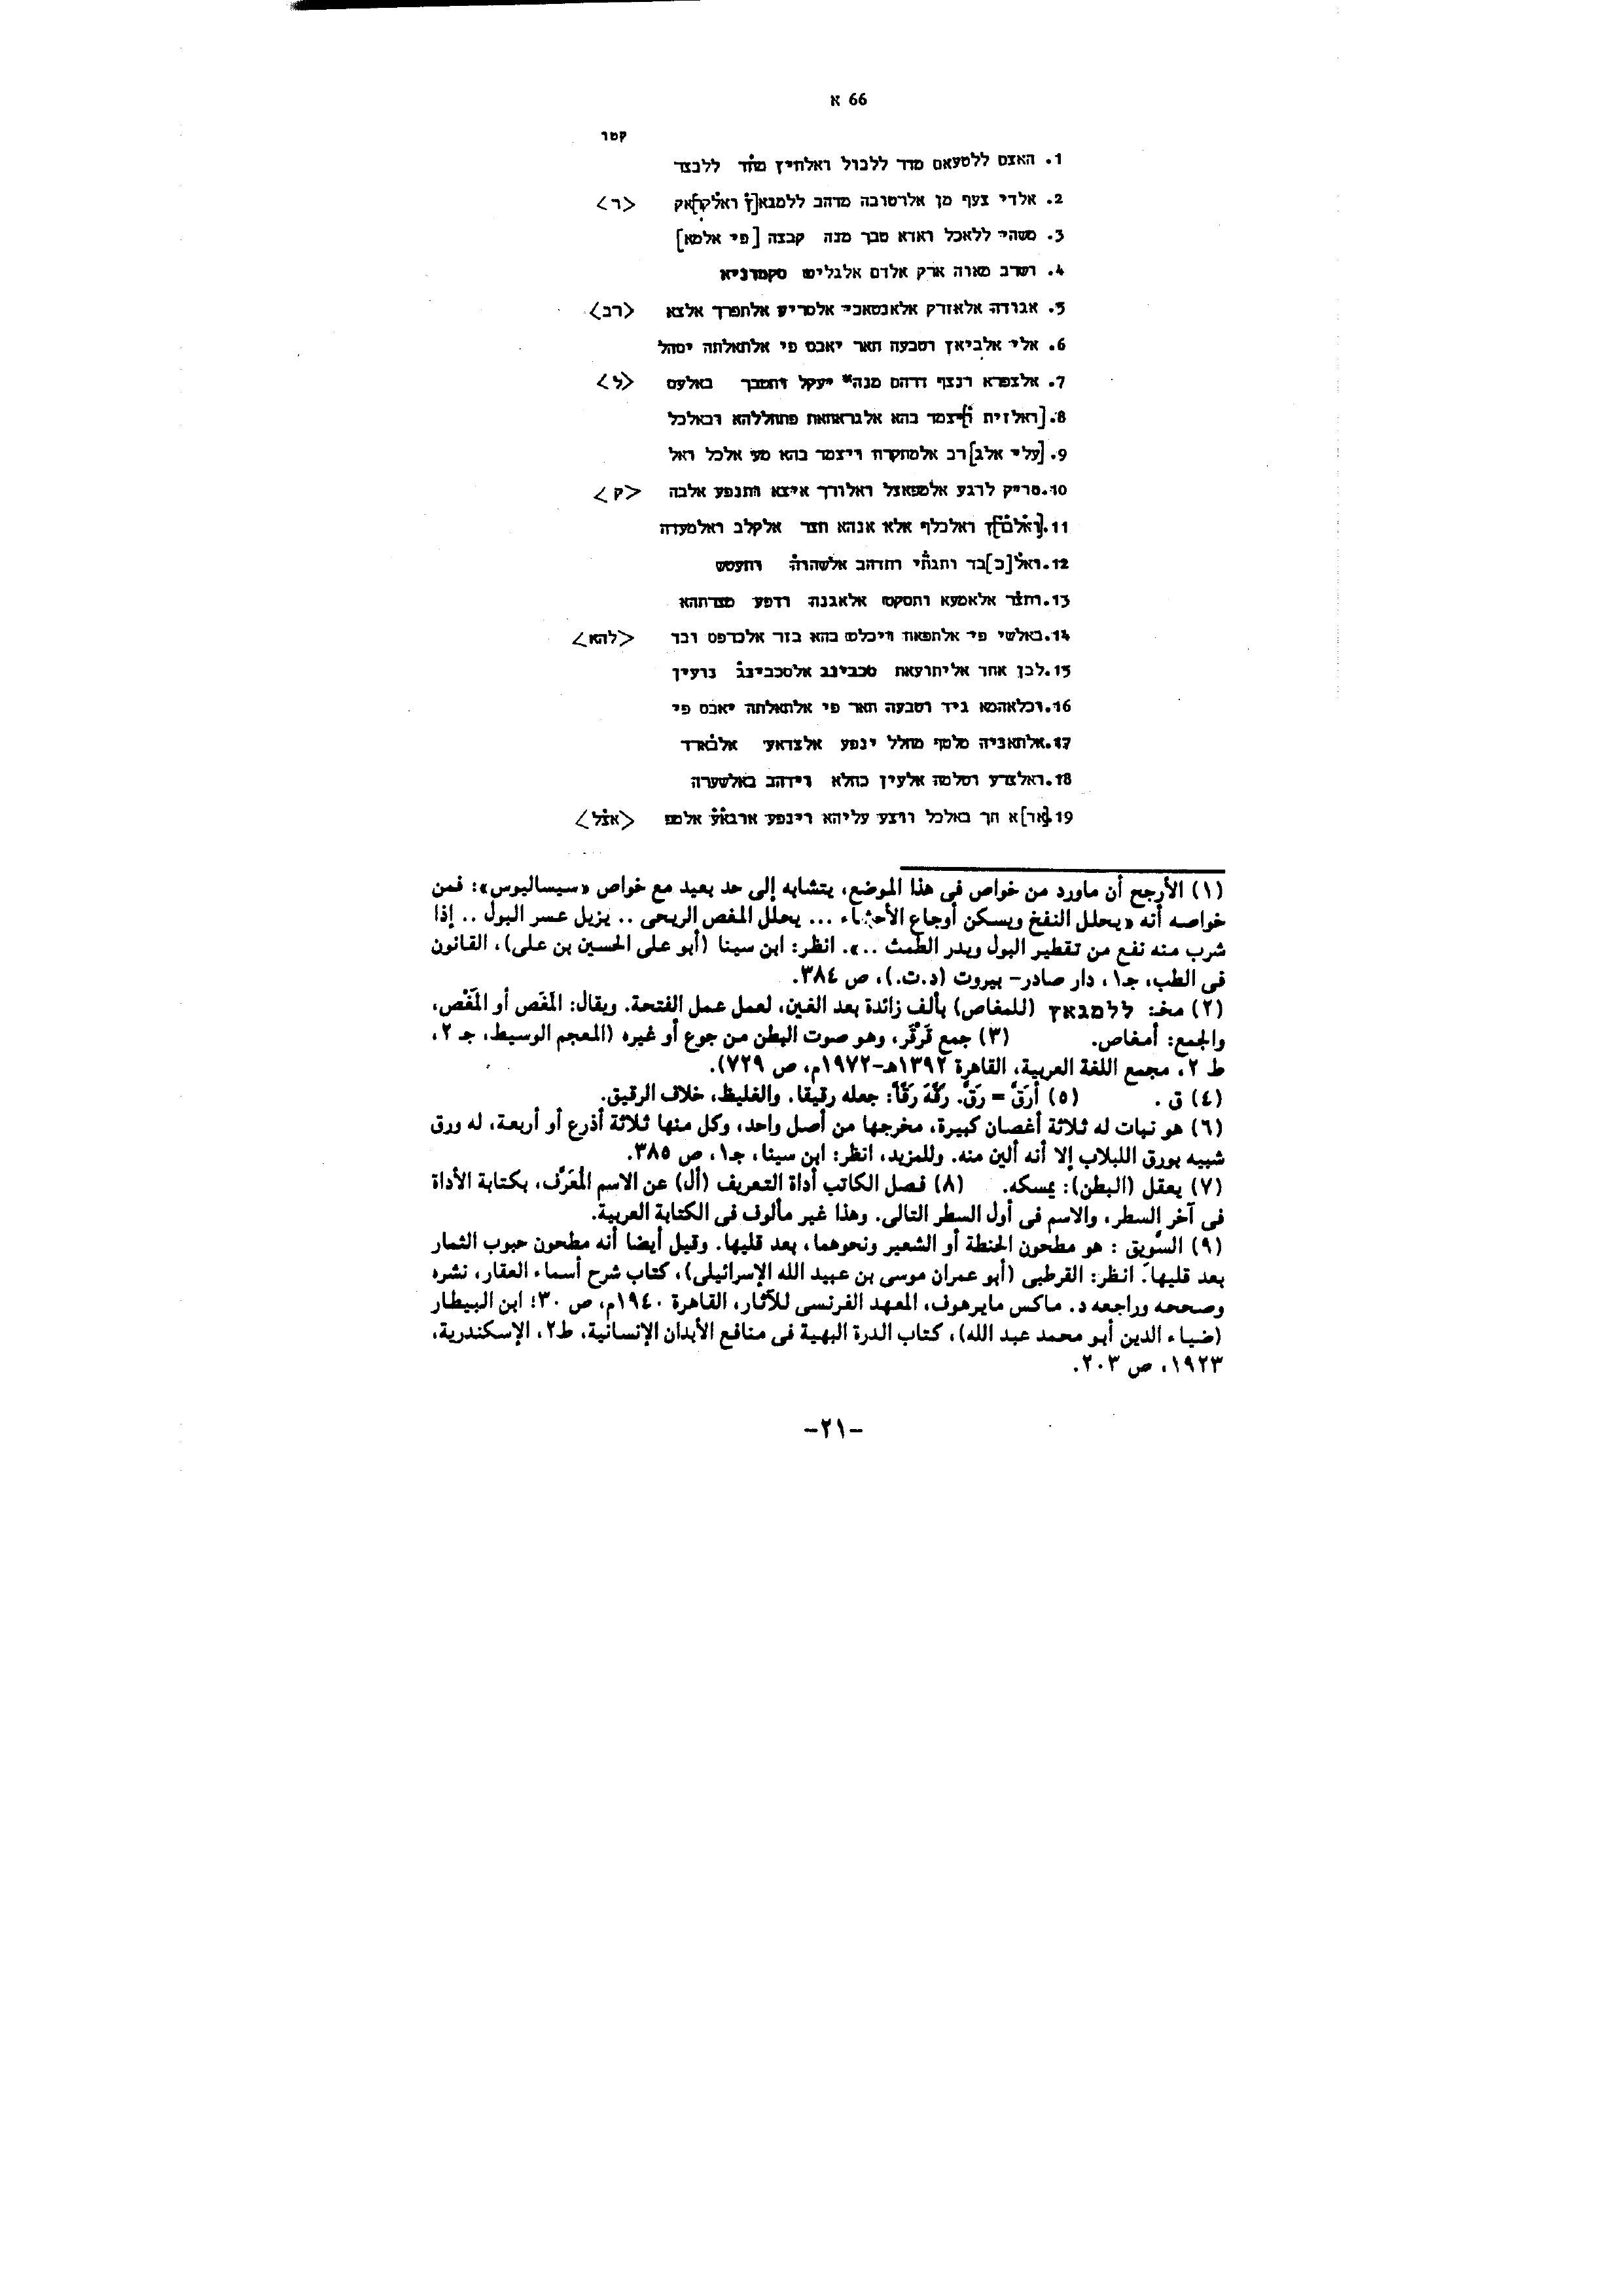 66 א
קטו
1. האצם ללטעאם מדר ללבול ואלחיץ מחד ללבצר
2. אלדי צעף מן אלרטובה מדהב ללמגא[ץ ואלקר]אק <ר>
3. משהי ללאכל ואדא טבך מנה קבצה [פי אלמא]
4. ושרב מאוה ארק אלדם אלגליט סקמוניא
5. אגודה אלאזרק אלאנטאכי אלסריע אלתפרך אלצא <רב>
6. אלי אלביאץ וטבעה חאר יאבס פי אלתאלתה יסהל
7. אלצפרא ונצף דרהם מנה יעקל ותטבך באלעס <ל>
8. [ואלזית ו]יצמד בהא אלגראחאת פתחללהא ובאלכל
9. [עלי אלג]רב אלמתקרח ויצמד בהא מע אלכל ואל
10. סריק לוגע אלמפאצל ואלורך איצא ותנפע אלבה <ק>
11. [ואלברץ] ואלכלף אלא אנהא תצר אלקלב ואלמעדה
12. ואל[כ]בד ותגתי ותדהב אלשהוה ותעטש
13. ותצר אלאמעא ותסקט אלאגנה ודפע מצרתהא
14. באלשי פי אלתפאח ויכלט בהא בזר אלכרפס ובד <להא>
15. לבן אחד אליתועאת סכבינג אלסכבינג נועין
16. וכלאהמא גיד וטבעה חאר פי אלתאלתה יאבס פי
17. אלתאניה מלטף מחלל ינפע אלצדאע אלבארד
18. ואלצרע וטלמה אלעין כחלא וידהב באלשערה
19. [אד]א חך באלכל ווצע עליהא וינפע אוגאע אלמפ <אצל>
(١) الأرجح أن ماورد من خواص فى هذا الموضع، يتشابه إلى حد بعيد مع خواص «سيساليوس»: فمن
خواصه أنه «يحلل النفخ ويسكن أوجاع الأحشاء ... يحلل المفص الريحى .. يزيل عسر البول .. إذا
شرب منه نفع من تقطير البول ويدر الطمث ..». انظر: ابن سينا (أبو على الحسين بن على)، القانون
فى الطب، جـ١، دار صادر- بيروت (د.ت.)، ص ٣٨٤.
(٢) مخـ: ללמגאץ (للمغاص) بألف زائدة بعد الغين، لعمل عمل الفتحة. ويقال: المَغَص أو المَغْص،
والجمع: أمغاص. (٣) جمع قَرْقَر، وهو صوت البطن من جوع أو غيره (المعجم الوسيط، جـ ٢،
ط ٢، مجمع اللغة العربية، القاهرة ١٣٩٢هـ-١٩٧٢م، ص ٧٢٩).
(٤) ق . (٥) أرَقّ = رَقّ. رَقَّهَ رَقّاً: جعله رقيقا. والغليظ، خلاف الرقيق.
(٦) هو نبات له ثلاثة أغصان كبيرة، مخرجها من أصل واحد، وكل منها ثلاثة أذرع أو أربعة، له ورق
شبيه بورق اللبلاب إلا أنه ألين منه. وللمزيد، انظر: ابن سينا، جـ١، ص ٣٨٥.
(٧) يعقل (البطن): يمسكه. (٨) فصل الكاتب أداة التعريف (أل) عن الاسم المُعَرَّف، بكتابة الأداة
فى آخر السطر، والاسم فى أول السطر التالى. وهذا غير مألوف فى الكتابة العربية.
(٩) السَّوِيق : هو مطحون الحنطة أو الشعير ونحوهما، بعد قليها. وقيل أيضا أنه مطحون حبوب الثمار
بعد قليها. انظر: القرطبى (أبو عمران موسى بن عبيد الله الإسرائيلى)، كتاب شرح أسماء العقار، نشره
وصححه وراجعه د. ماكس مايرهوف، المعهد الفرنسى للآثار، القاهرة ١٩٤٠م، ص ٣٠؛ ابن البيطار
(ضياء الدين أبو محمد عبد الله)، كتاب الدرة البهية فى منافع الأبدان الإنسانية، ط٢، الإسكندرية،
١٩٢٣، ص ٢٠٣.
-٢١-